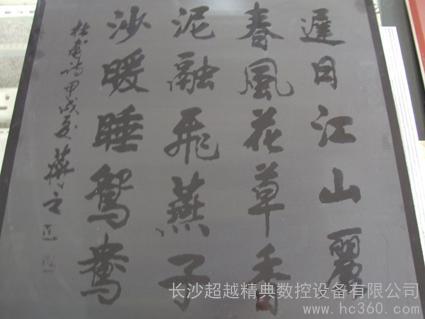 遲日江山麗
春風花草香
泥融飛燕子
沙暖睡鴛鴦
杜甫诗甲戌夏
长沙超越精典数控设备有限公司
www.hc360.com